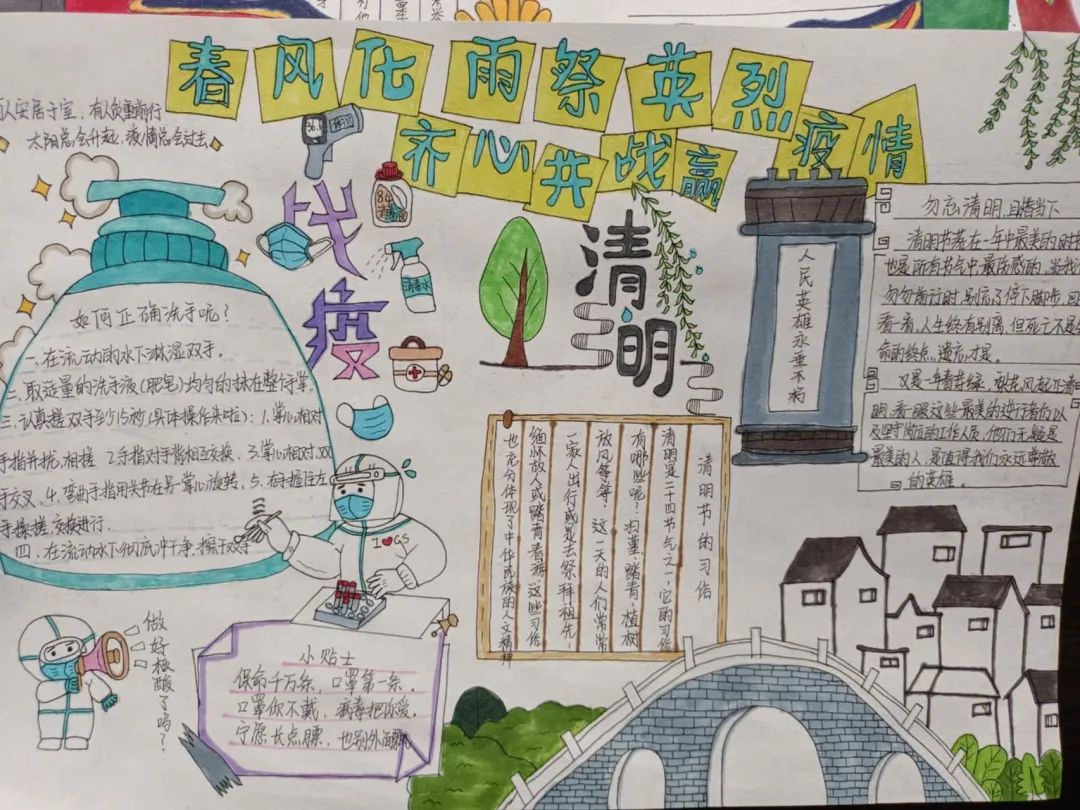 春风化雨祭英烈
齐心共战赢疫情
人安居于室，有人负重前行
太阳总会升起，疫情总会过去
战疫
84
消毒水
清明
如何正确洗手呢？
一、在流动的水下淋湿双手。
二、取适量的洗手液（肥皂）均匀的抹在整个手掌
三、认真搓双手至少15秒（具体操作来啦）：1.掌心相对
手指并拢，相搓 2.手指对手背相互交换、3.掌心相对，双
手交叉、4.弯曲手指用关节在另一掌心旋转、5.右手握住左
手揉搓，交换进行.
四、在流动水下彻底冲干净，擦干双手
I GS
做好核酸了吗？
小贴士
保命千万条，口罩第一条.
口罩你不戴，病毒把你爱.
宁愿长点膘，也别外面飘
清明节的习俗
清明是二十四节气之一，它的习俗
有哪些呢？扫墓、踏青，植树
放风筝等，这一天的人们常常
一家人出行或是去祭拜祖先，
缅怀故人或踏青看游，这些习俗
也充分体现了中华民族的人文精神
人民英雄永垂不朽
勿忘清明，且惜当下
清明节落在一年中最美的时节
也是所有节气中最伤感的，当我们
匆匆前行时，别忘了停下脚步，回
看一看，人生终有别离，但死亡不是
命的终点，遗忘才是。
又是一年春草绿，梨花风起正清
明，看一眼这些最美的逆行者们以
及坚守岗位的工作人员，他们无疑是
最美的人，是值得我们永远尊敬
的英雄。